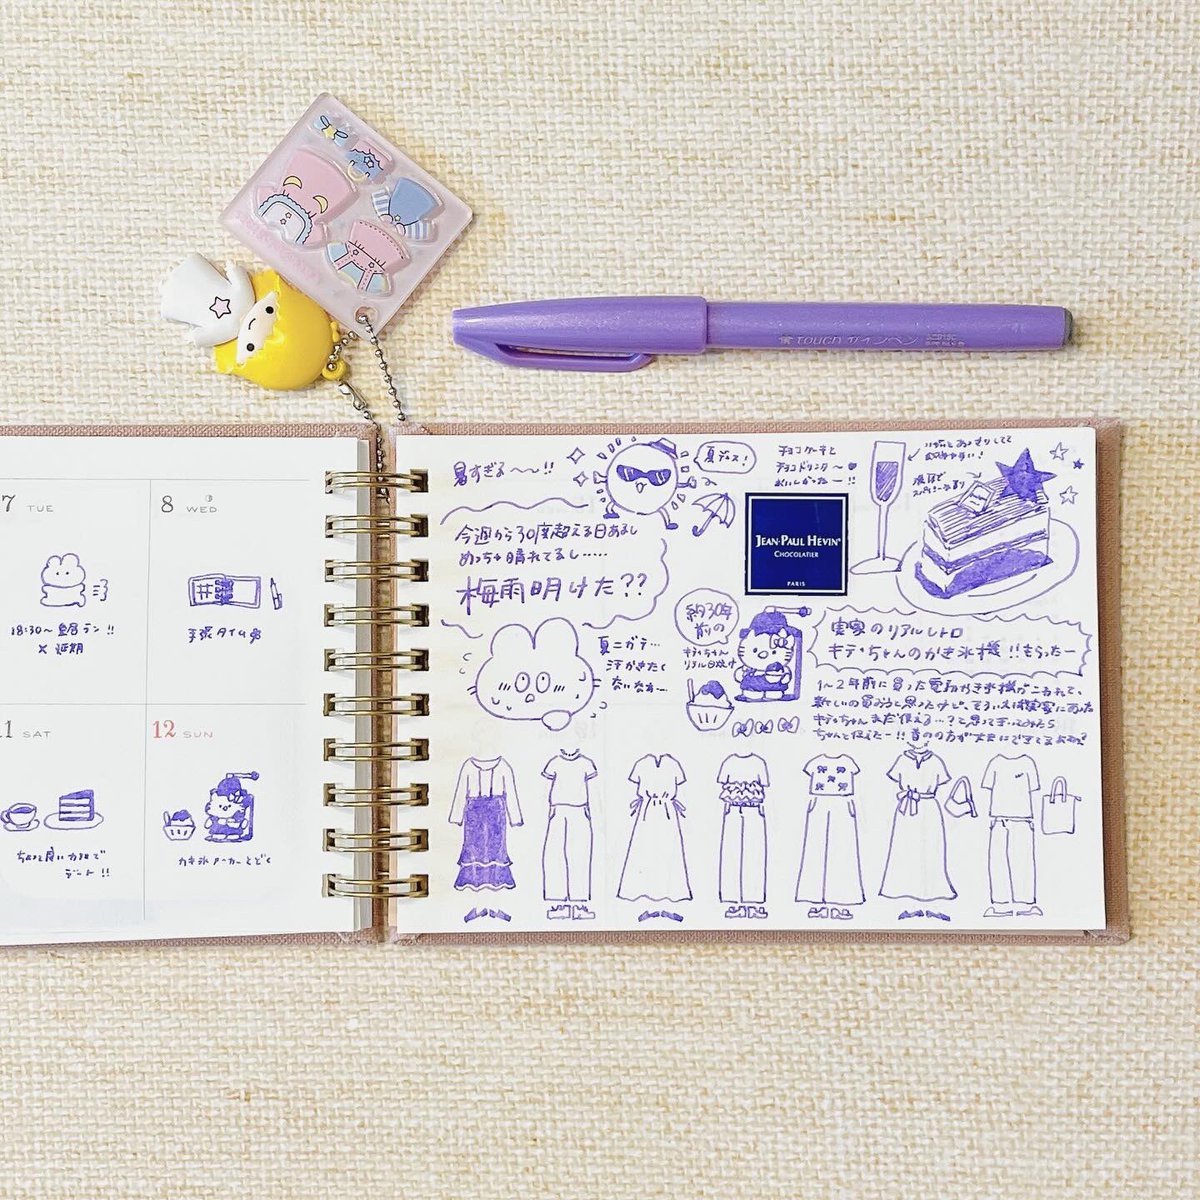 touch サインペン
7 TUE
8 WED
18:30〜
延期
手帳タイム
11 SAT
12 SUN
ちょっと良いカフェで
デート!!
かき氷メーカーとどく
暑すぎる〜〜!!
夏デス!
今週から30度超える日あるし
めっちゃ晴れてるし……
梅雨明けた??
夏ニガテ…
汗かきたく
ないなぁ…
チョコケーキと
チョコドリンク〜
おいしかった〜!!
JEAN-PAUL HEVIN
CHOCOLATIER
PARIS
約30年
前の
キティちゃん
実家のリアルレトロ
キティちゃんのかき氷機!!もらったー
1〜2年前に買った電動かき氷機がこわれて、
新しいの買おうと思ったけど、そういえば実家にあった
キティちゃんまだ使える…?と思って
ちゃんと使えたー!!昔のの方が丈夫にできてる